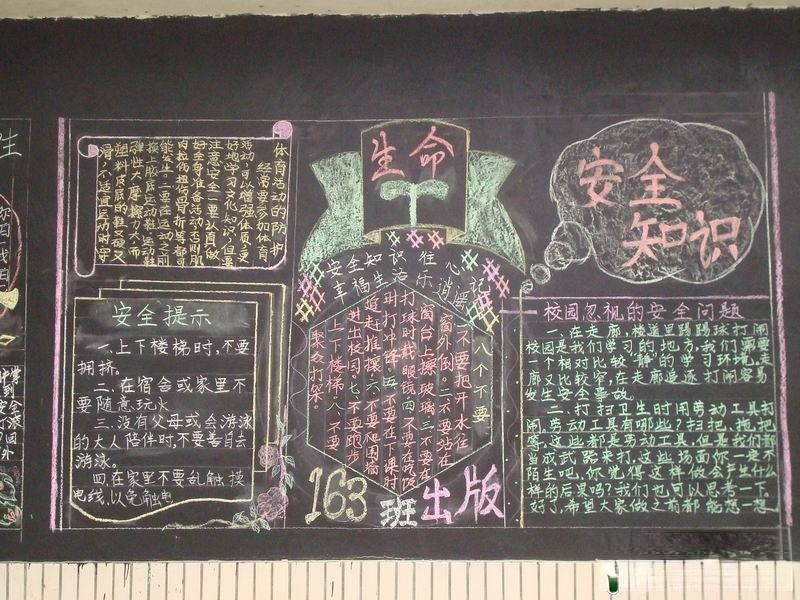 体育活动的防护
经常要参加体育
活动,可以增强体质,更
好地学习文化知识,但要
注意安全。一要认真做
好全身准备活动,否则肌
肉拉伤、扭伤、骨折等都可
能发生。二要在运动之前
换上胶底运动鞋,运动鞋
弹性大,摩擦力大,而
塑料皮底的鞋又硬又
滑,不适宜运动时穿
安全提示
一、上下楼梯时,不要
拥挤。
二、在宿舍或家里不
要随意玩火
三、没有父母或会游泳
的大人陪伴时,不要擅自去
游泳。
四、在家里不要乱触摸
电线,以免触电
生命
安全知识住心
幸福生活乐逍遥
八个不要
一不要把开水往
窗外倒。二不要站在
窗台上擦玻璃三不要在
打球时戴眼镜四不要在吃饭
时打冲锋五不要在下课时
追赶推攘六不要爬围墙
进出校园。七不要跑步
上下楼梯。八不要
聚众打架。
163班出版
安全
知识
校园忽视的安全问题
一、在走廊,楼道里踢踢球打闹
校园是我们学习的地方,我们需要
一个相对比较"静"的学习环境,走
廊又比较窄,在走廊追逐打闹容易
发生安全事故。
二、打扫卫生时用劳动工具打
闹,劳动工具有哪些?扫把,拖把
等,这些都是劳动工具,但是我们都
当成武器来打,这些场面你一定不
陌生吧,你觉得这样做会产生什么
样的后果吗?我们也可以思考一下,
好了,希望大家做之前都能想一想